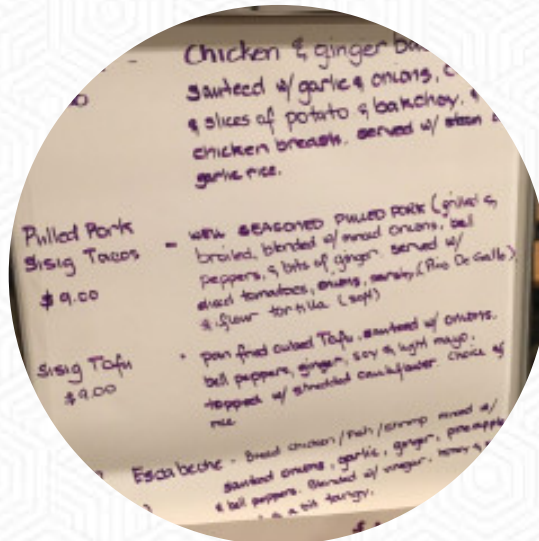 - Chicken & ginger
sauteed w/ garlic & onions,
& slices of potato & bokchoy,
chicken breast. served w/ steam
garlic rice.
Pulled Pork
Sisig Tacos
$9.00
- WELL SEASONED PULLED PORK (grilled &
broiled, blended w/ minced onions, bell
peppers, & bits of ginger. served w/
diced tomatoes, onions, parsley, (Pico De Gallo)
& flour tortilla (soft)
Sisig Tofu
$9.00
- pan fried cubed Tofu, sauteed w/ onions.
bell peppers, ginger, soy & light mayo.
topped w/ shredded cauliflower. Choice of
rice
Escabeche - Bread chicken/Fish/shrimp mixed w/
sauteed onions, garlic, ginger, pineapple
& bell peppers. Blended w/ vinegar, honey &
a bit tangy.